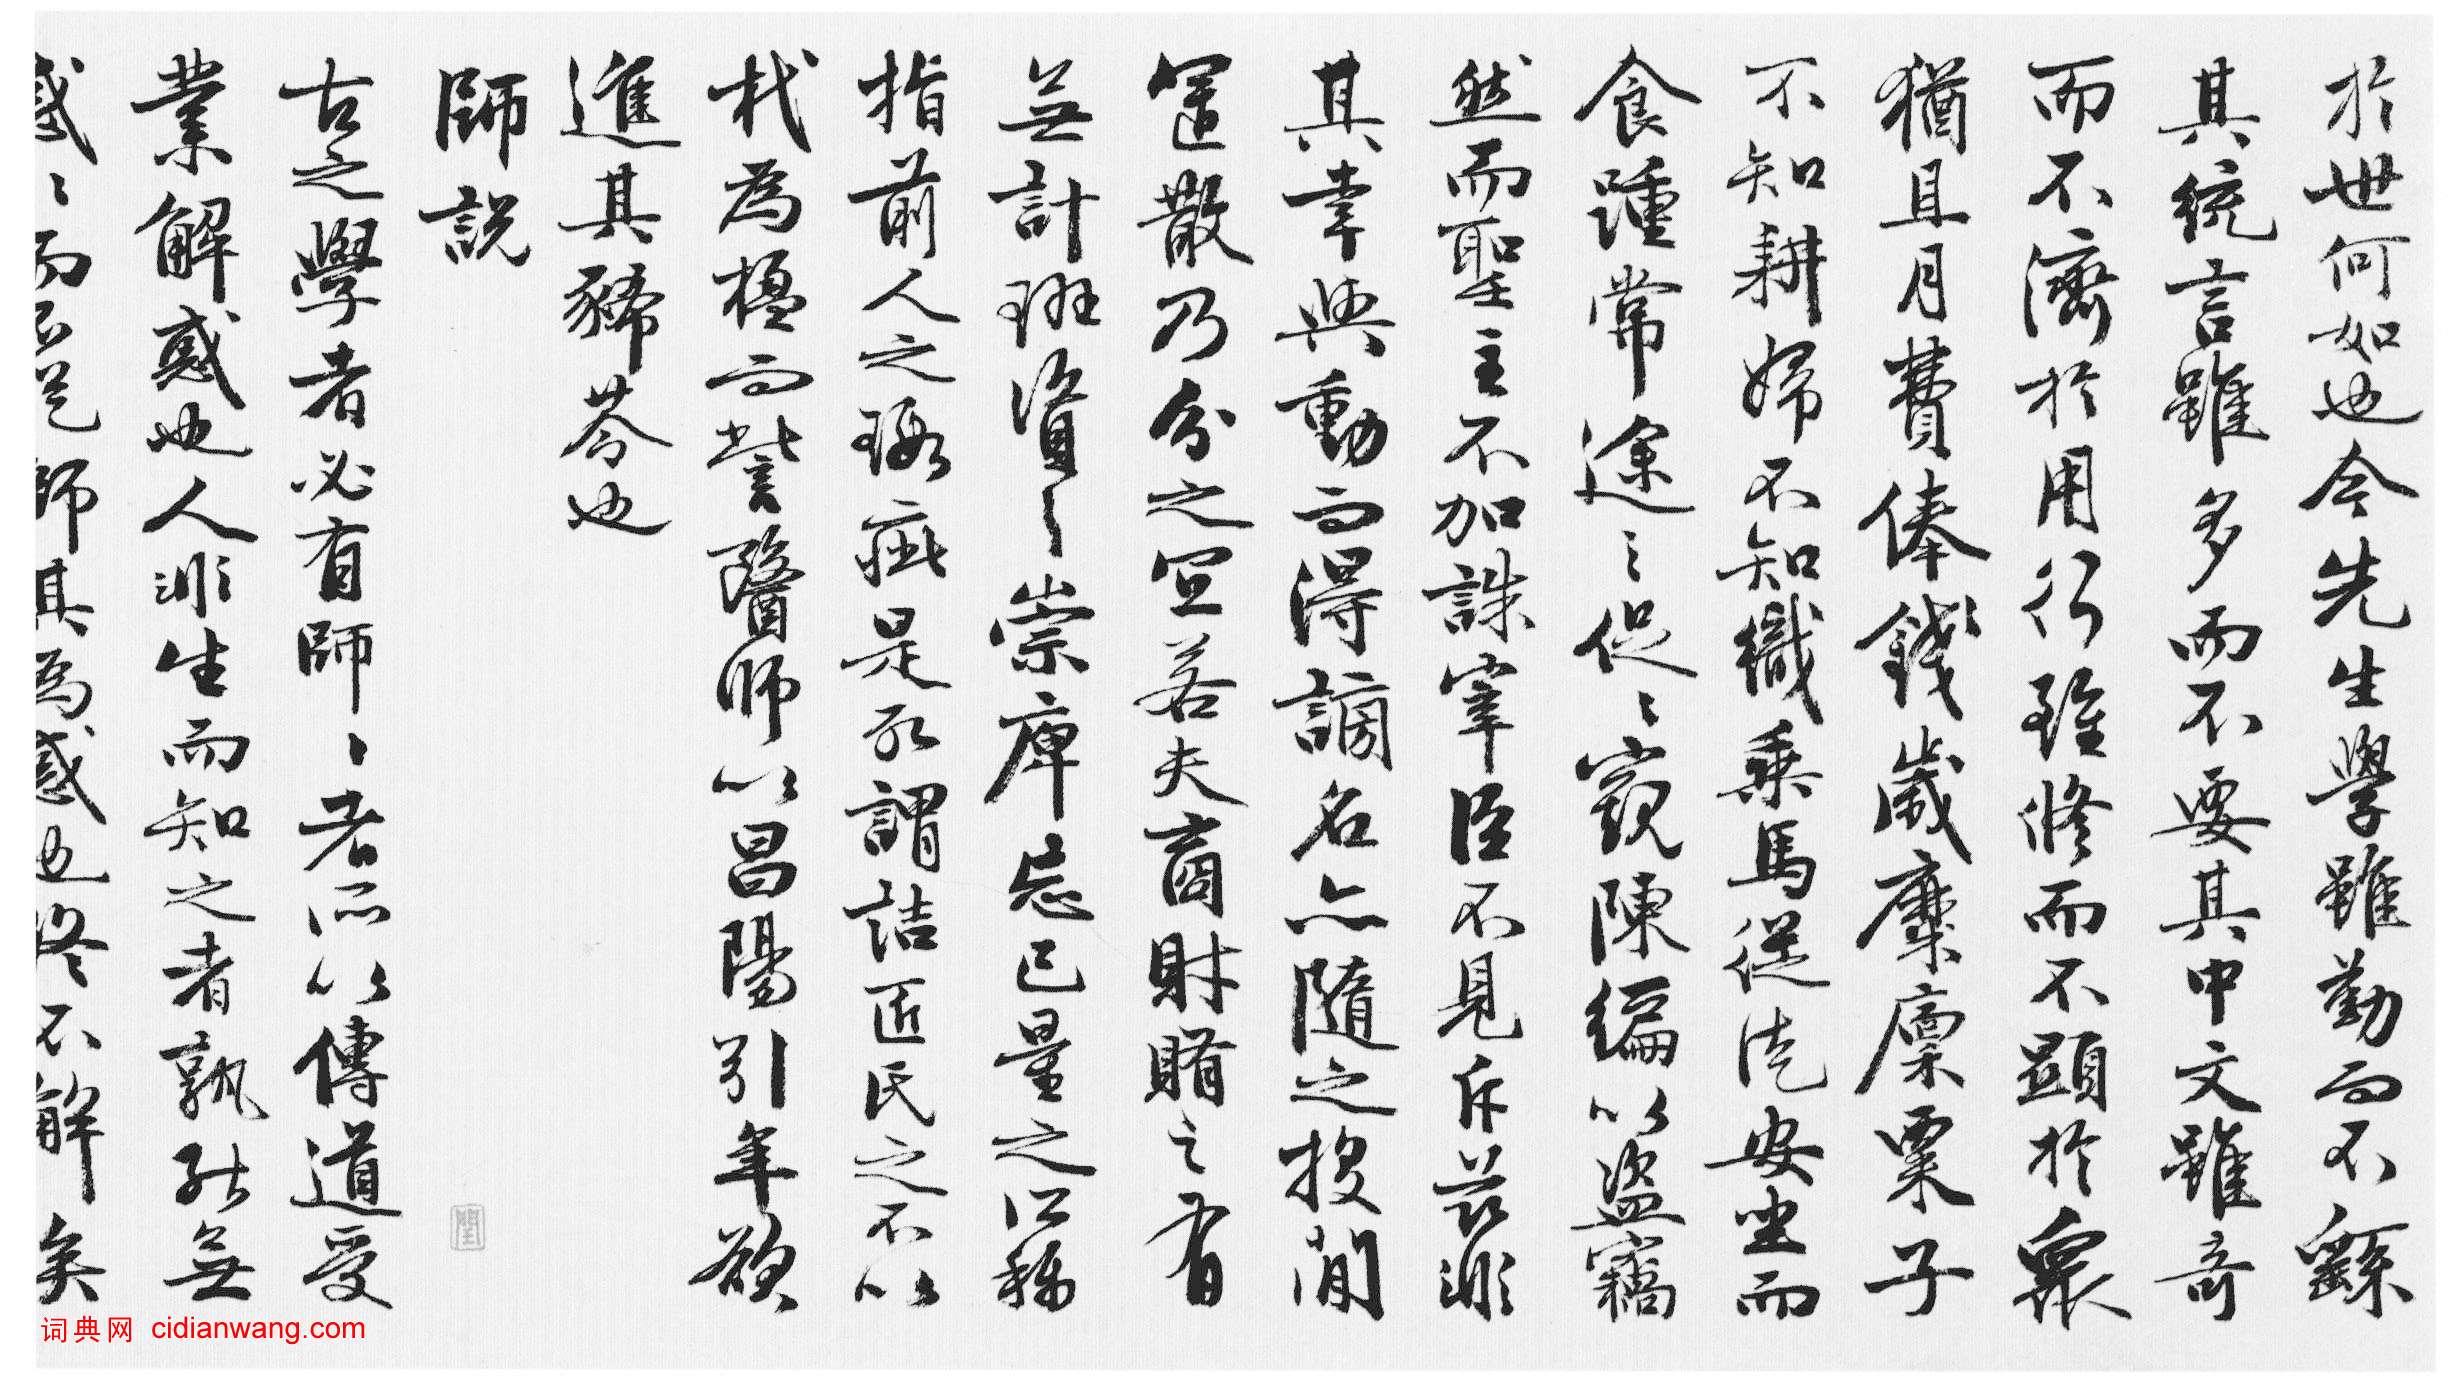 於世何如也今先生學雖勤而不繇
其統言雖多而不要其中文雖奇
而不濟於用行雖修而不顯於衆
猶且月費俸錢歲糜廩粟子
不知耕婦不知織乘馬從徒安坐而
食踵常途之促〻窺陳編以盜竊
然而聖主不加誅宰臣不見斥茲非
其幸與動而得謗名亦隨之投閒
置散乃分之宜若夫商財賄之有
無計班資之崇庳忘己量之所稱
指前人之瑕疵是所謂詰匠氏之不以
杙為楹而訾醫師以昌陽引年欲
進其豨苓也
師說
古之學者必有師〻者所以傳道受
業解惑也人非生而知之者孰能無
惑〻而不從師其為惑也終不解矣
词典网 cidianwang.com